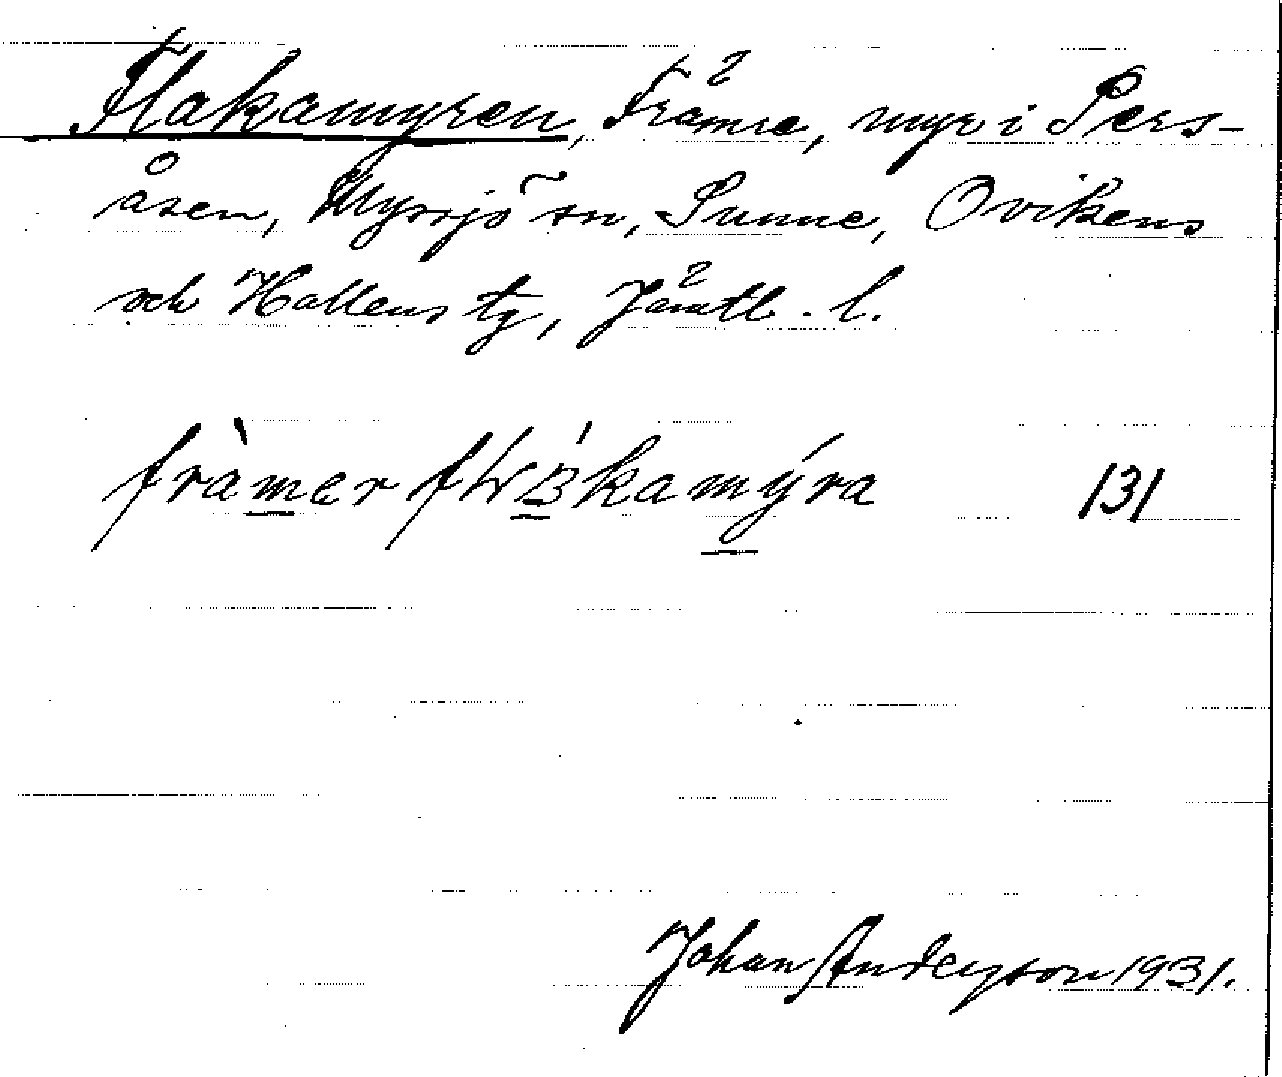 Flakamyren, Främre, myr i Pers-
åsen, Myssjö sn, Sunne, Ovikens
och Hallens tg, Jämtl. l.
131
Johan Anderson 1931.